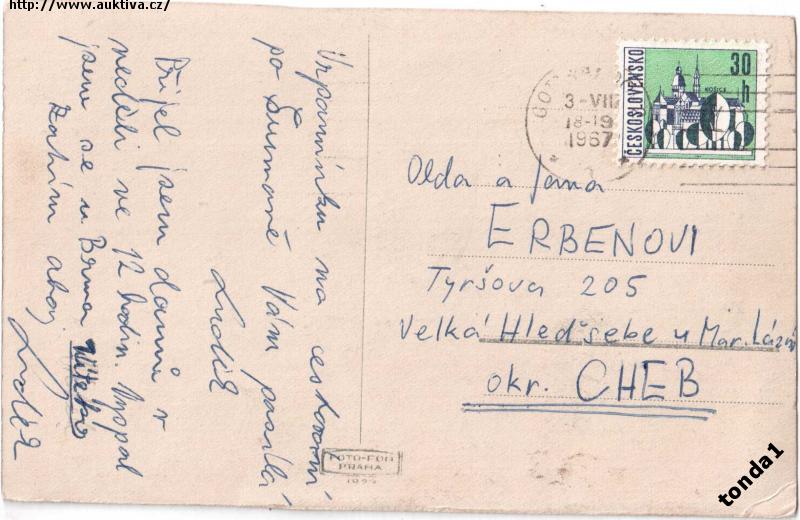 http://www.auktiva.cz/
Vzpomínku na cestování
po Šumavě Vám posílá
Luděk
Přijel jsem domů v
neděli ve 12 hodin. Vyspal
jsem se u Brna
zatím ahoj
Luděk
GOTTWALDOV
3-VII
18-19
1967
ČESKOSLOVENSKO
30
h
KOŠICE
Olda a Jana
ERBENOVI
Tyršova 205
Velká Hleďsebe u Mar. Lázní
okr. CHEB
FOTO-FON
PRAHA
tonda1